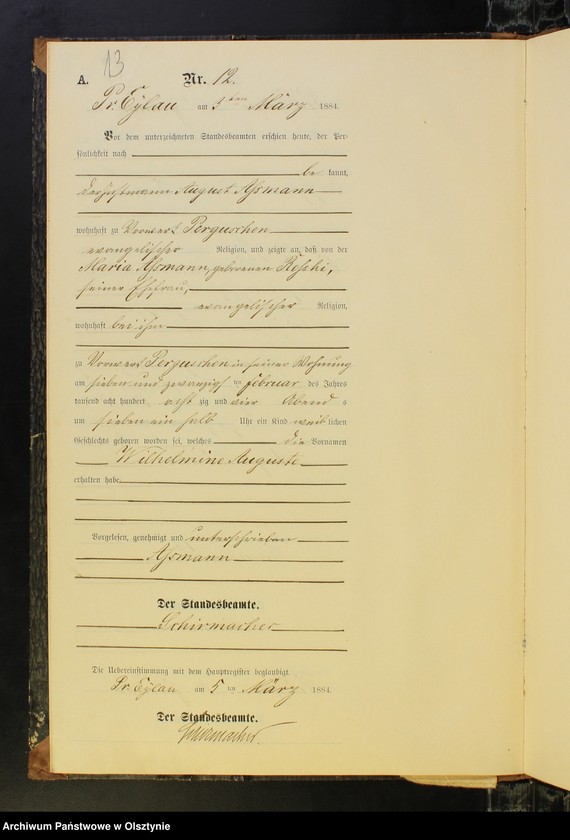 13
A. Nr. 12.
Pr. Eylau am 5ten März 1884.
Vor dem unterzeichneten Standesbeamten erschien heute, der Per-
sönlichkeit nach
be kannt,
August Aſsmann
wohnhaft zu Vorwerk Perguschen
evangelischer Religion, und zeigte an, daß von der
Maria Aſsmann, geborenen Reschi,
seiner Ehefrau,
evangelischer Religion,
wohnhaft bei ihm
zu Vorwerk Perguschen in seiner Wohnung
am sieben und zwanzigs ten Februar des Jahres
tausend acht hundert acht zig und vier Abend s
um sieben ein halb Uhr ein Kind weib lichen
Geschlechts geboren worden sei, welches die Vornamen
Wilhelmine Auguste
erhalten habe
Vorgelesen, genehmigt und unterschrieben
Aſsmann
Der Standesbeamte.
Schirmacher
Die Uebereinstimmung mit dem Hauptregister beglaubigt.
Pr. Eylau am 5ten März 1884.
Der Standesbeamte.
Schirmacher.
Archiwum Państwowe w Olsztynie